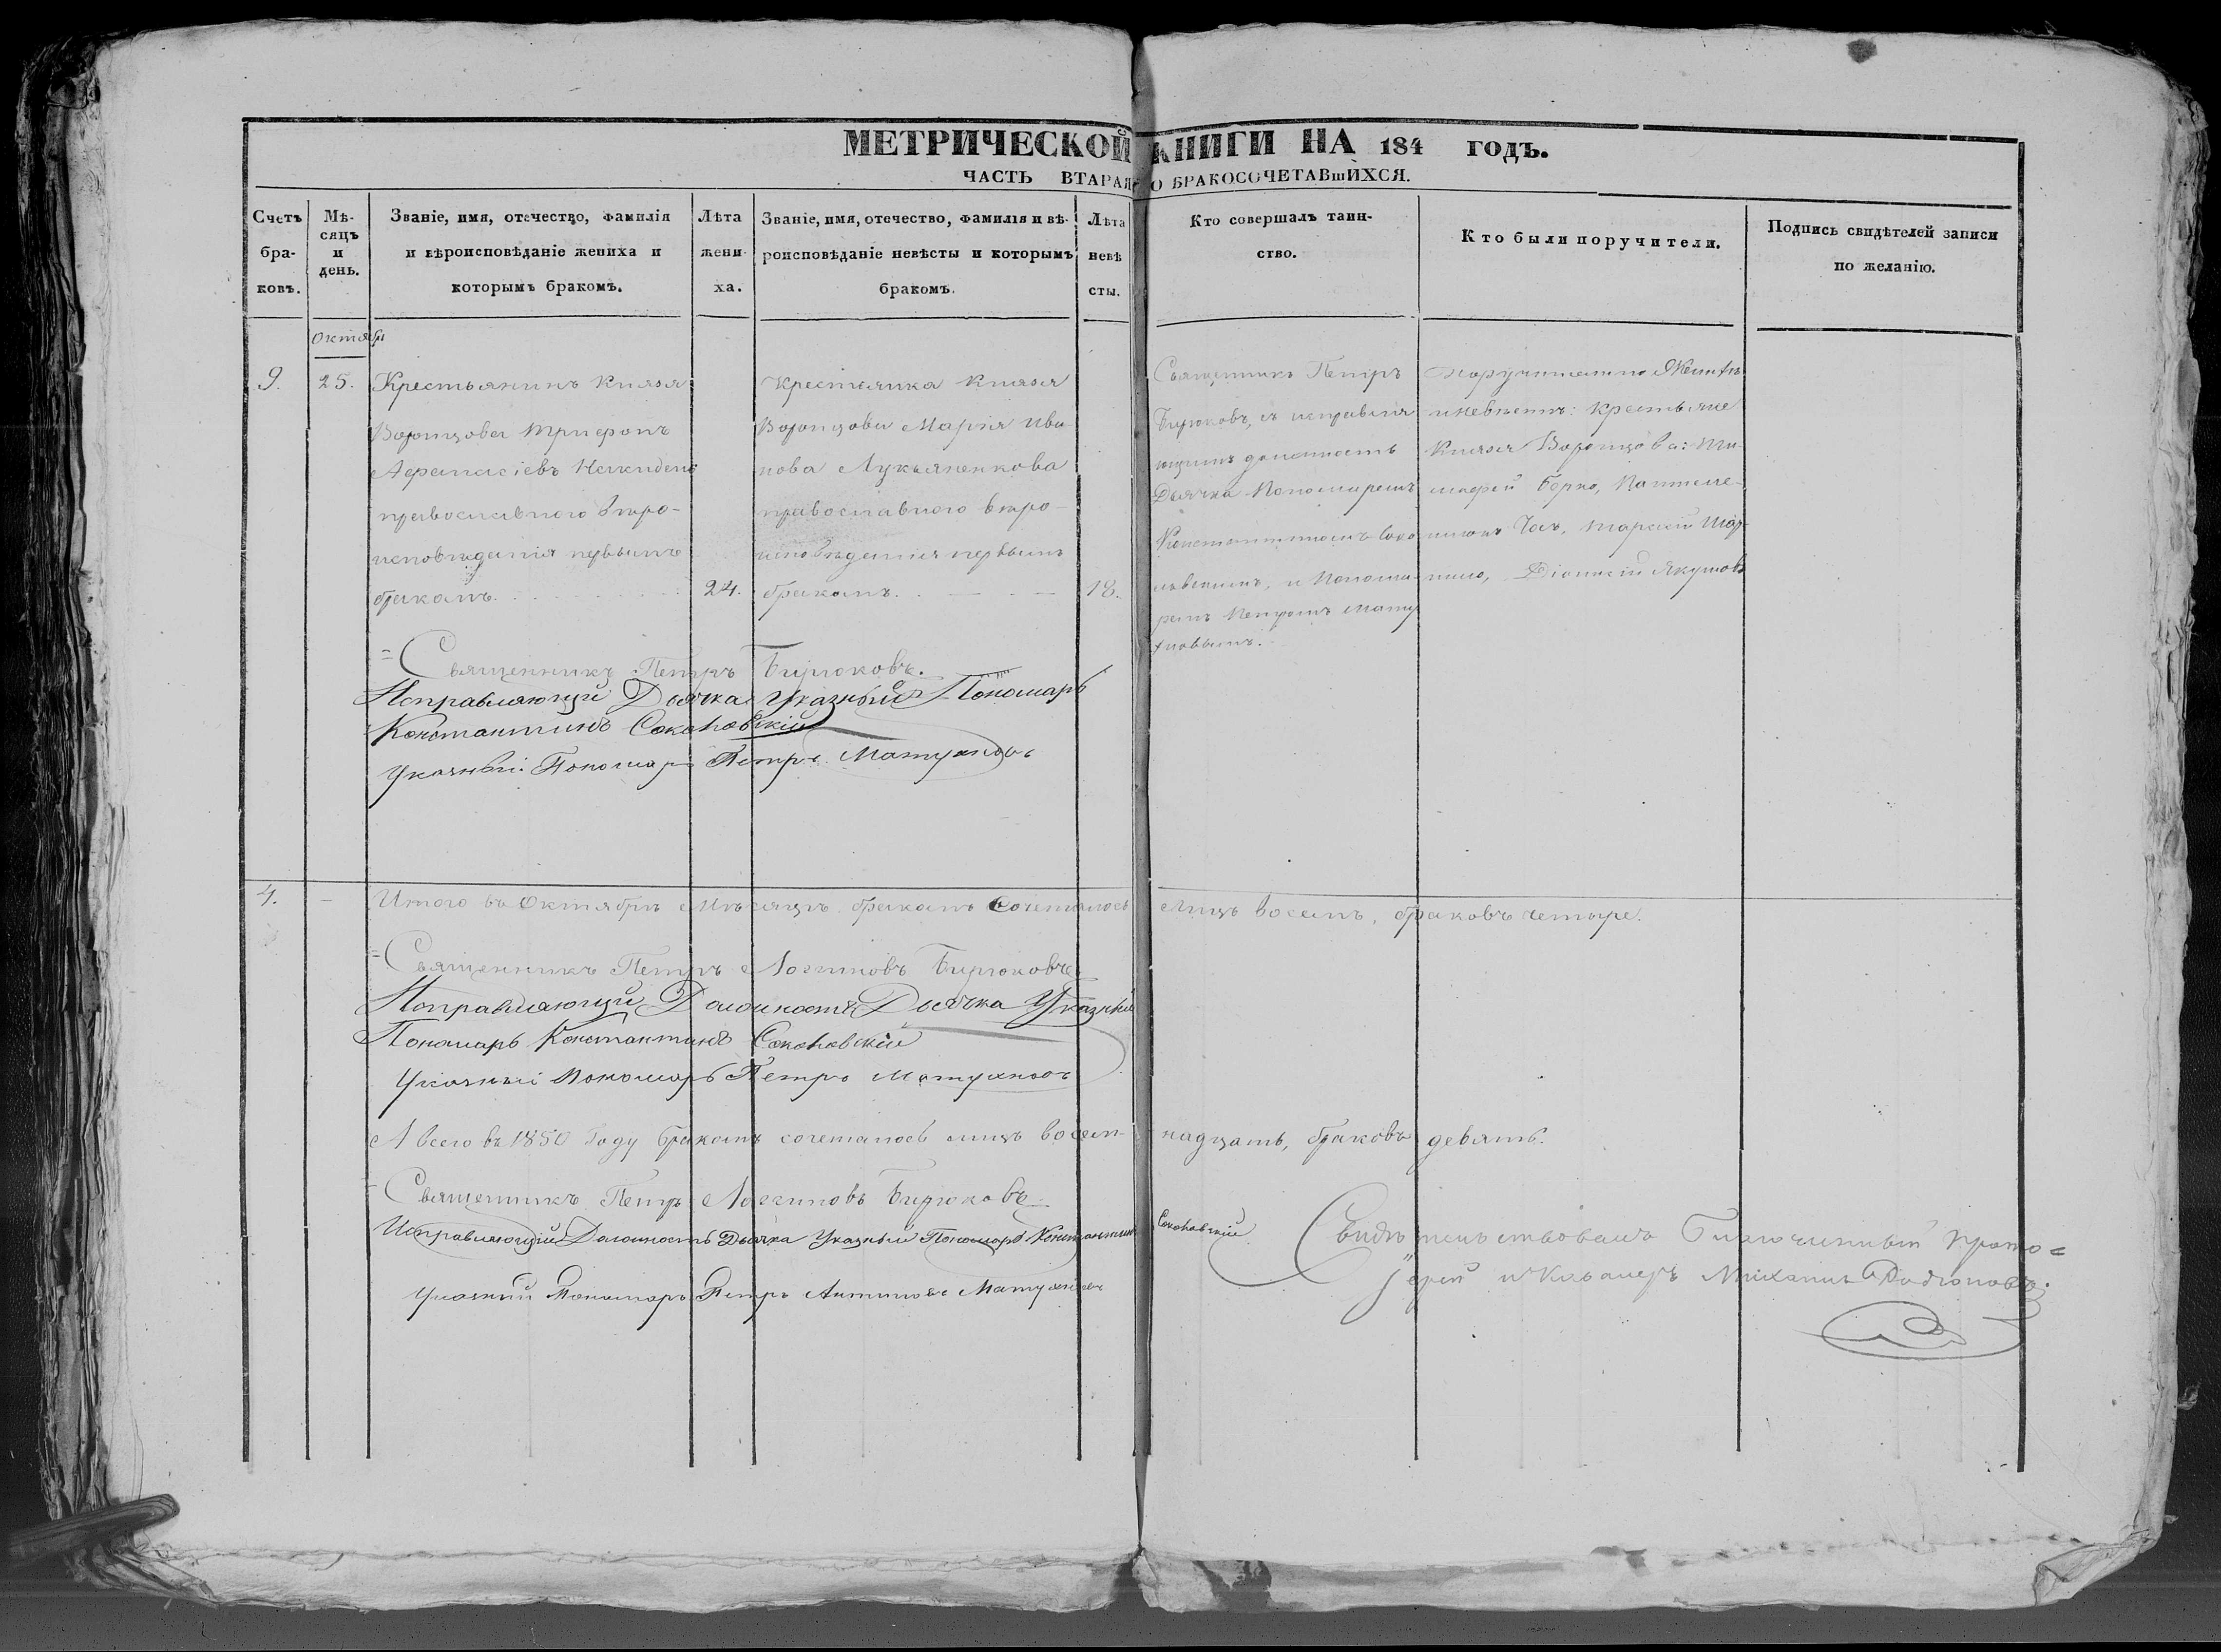 МЕТРИЧЕСКОЙ КНИГИ НА 184 ГОДЪ.
ЧАСТЬ ВТАРАЯ О БРАКОСОЧЕТАВшИХСЯ.
Счетъ бра- ковъ.
Мѣ- сяцъ и день.
Званіе, имя, отечество, фамилія и вѣроисповѣданіе жениха и которымъ бракомъ.
Лѣта жени- ха.
Званіе, имя, отечество, фамилія и вѣ- роисповѣданіе невѣсты и которымъ бракомъ.
Лѣта невѣ сты.
Кто совершалъ таин- ство.
Кто были поручители.
Подпись свидѣтелей записи по желанію.
Октябр
9.
25.
Крестьянинъ Князя
Воронцова Трифонъ
Афанасіевъ
православного вѣро-
исповѣданія первымъ
бракомъ.
24.
Крестьянка Князя
Воронцова Марія Ива
нова Лукьяненкова
православного вѣро-
исповѣданія первымъ
бракомъ.
18.
Священникъ Петръ
Бирюковъ, съ исправля
ющимъ должность
Дьячка Пономаремъ
Константиномъ Соко
ловскимъ, и Понома
ремъ Петромъ Мату
хновымъ.
поручители по Женихѣ
и невѣстѣ: крестьяне
Князя Воронцова: Ти-
мофей
Діонисій Якушовъ
=Священникъ Петръ Бирюковъ.
Исправляющій Дьячка Указный Пономарь
Константинъ Соколовскій
Указный Пономарь Петръ Матухновъ
4.
–
Итого въ Октябрѣ мѣсяцѣ бракомъ сочеталось лицъ восемь, браковъ четыре.
=Священникъ Петръ Логгиновъ Бирюковъ
Исправляющій Должность Дьячка Указный
Пономарь Константинъ Соколовскій
Указный Пономарь Петръ Матухновъ
А всего въ 1850 Году бракомъ сочеталось лицъ восем- надцать, браковъ девять.
Священникъ Петръ Логгиновъ Бирюковъ
Исправляющій Должность Дьячка Указный Пономарь Константинъ Соколовскій
Указный Пономарь Петръ Антиновъ Матухновъ
Свидѣтельствовалъ Благочинный Прото=
іерей и Кавалеръ Михаилъ Родіоновъ.